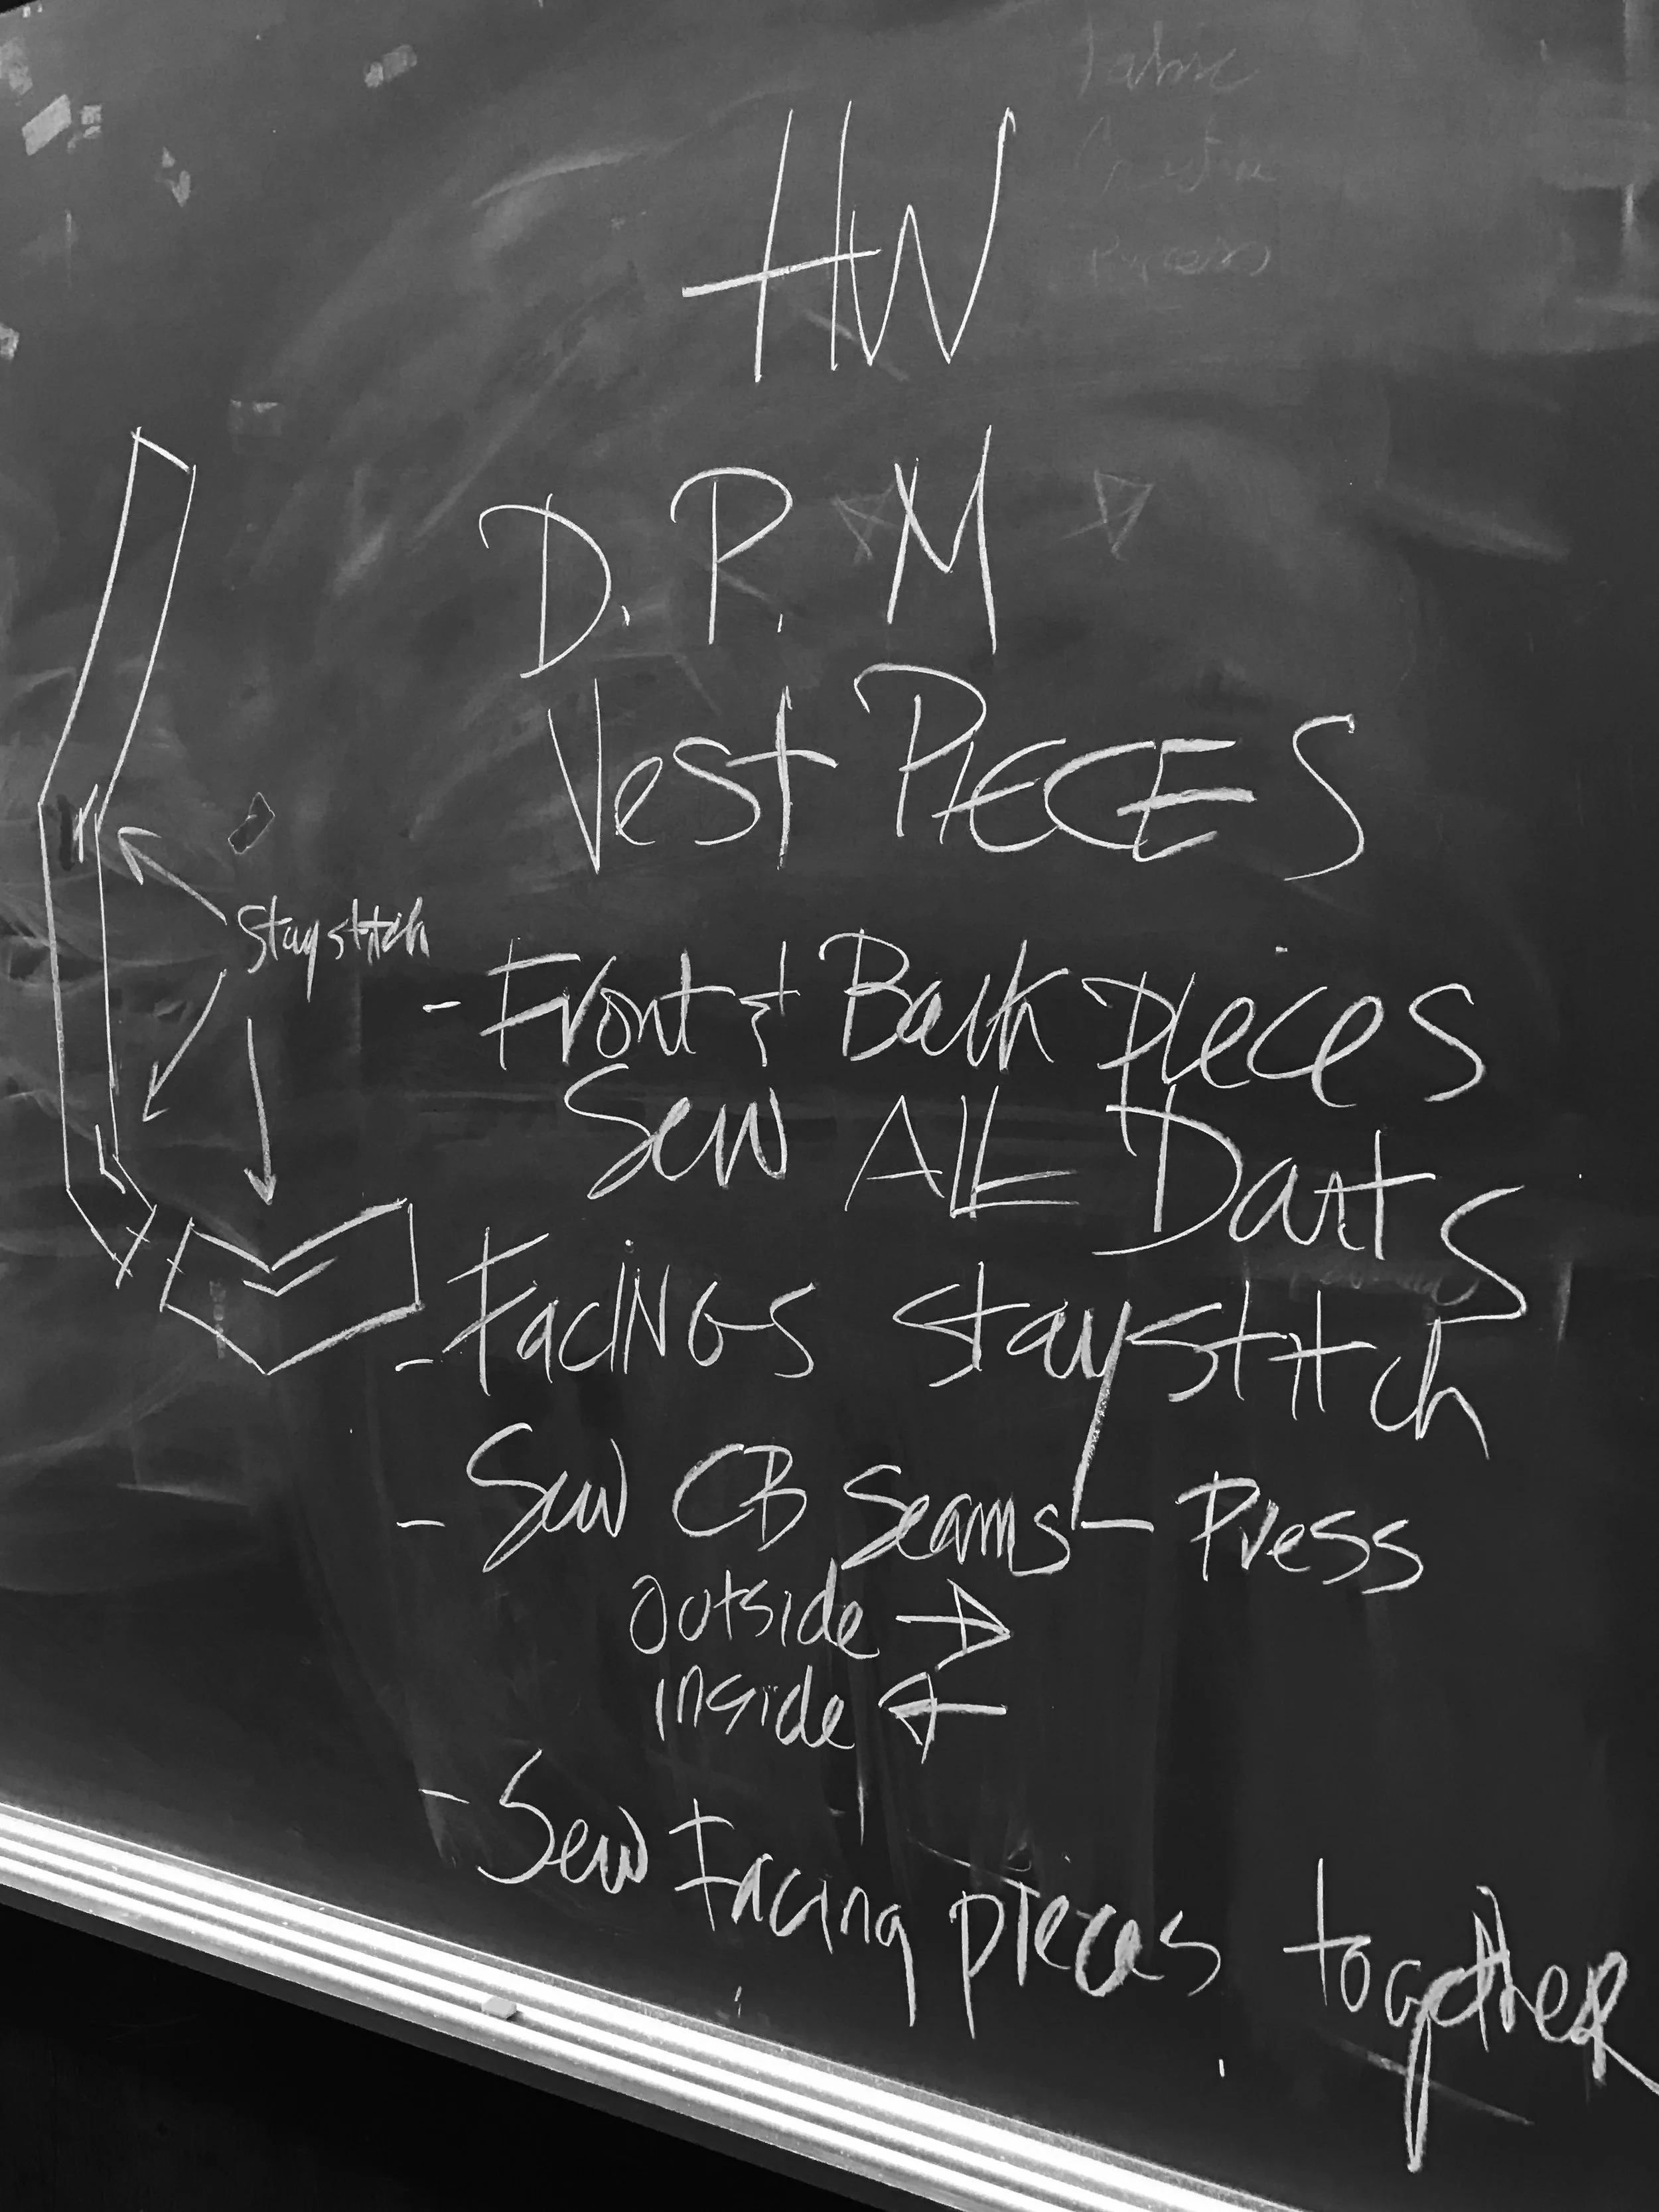 HW
D. P. M
Vest PIECES
Staystitch
- Front & Back pieces
Sew ALL Darts
- FaciNGs staystitch
- Sew CB Seams - Press
Outside →
inside ←
- Sew Facing pieces together